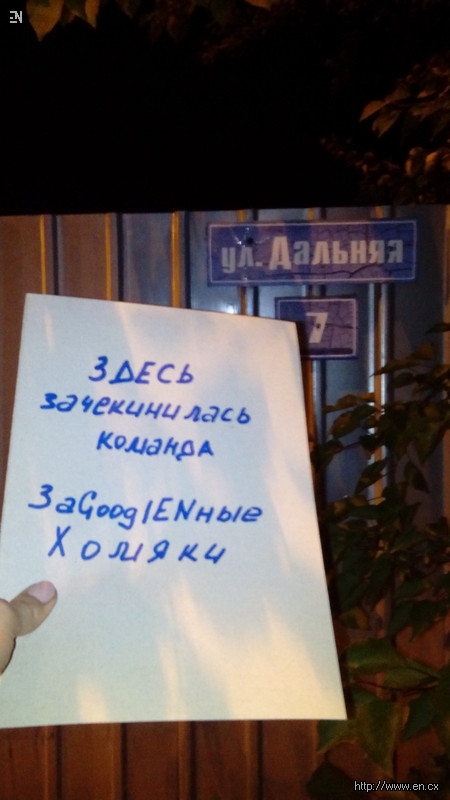 EN
ул. Дальняя
7
ЗДЕСЬ
зачекинилась
команда
ЗаGooglENные
Хомяки
http://www.en.cx